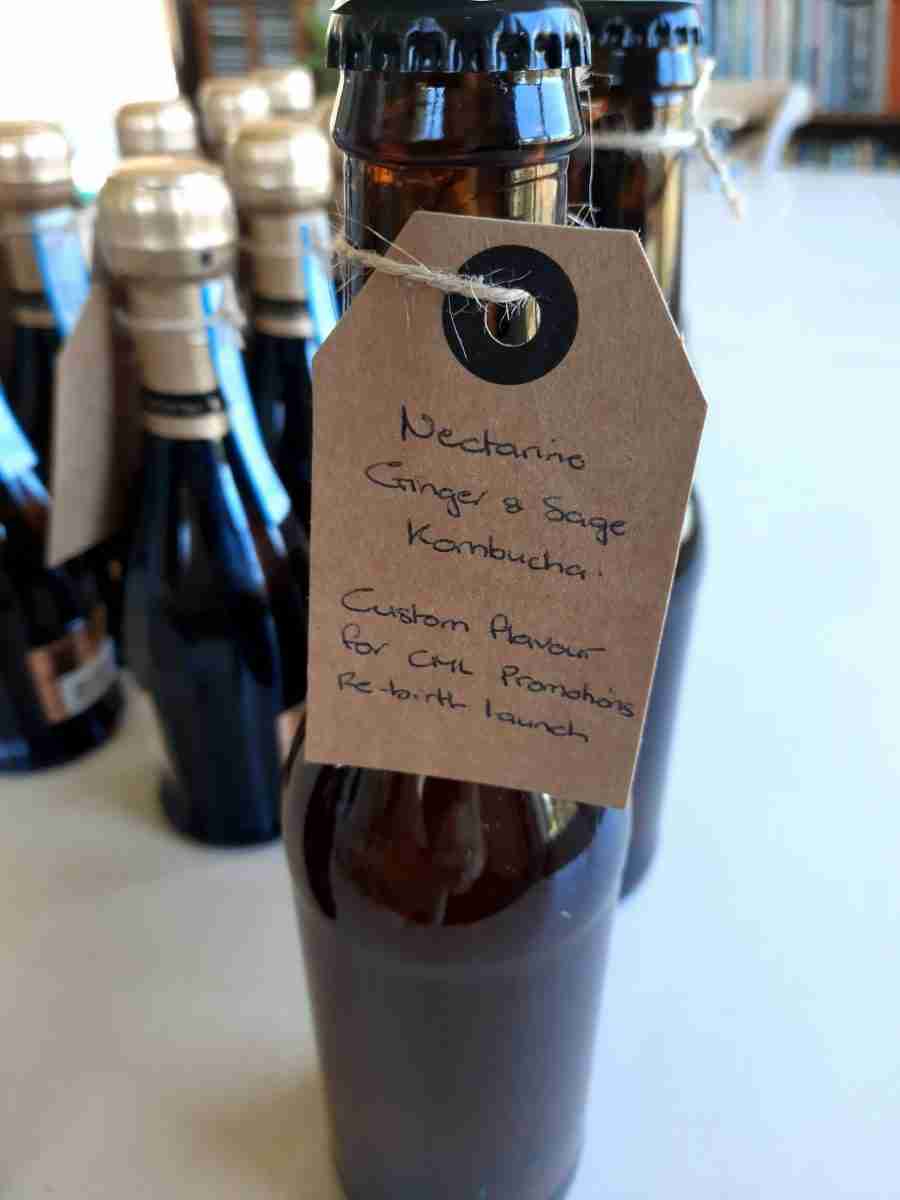 Nectarine
Ginger & Sage
Kombucha.
Custom flavour
for CML Promotions
Re-birth launch